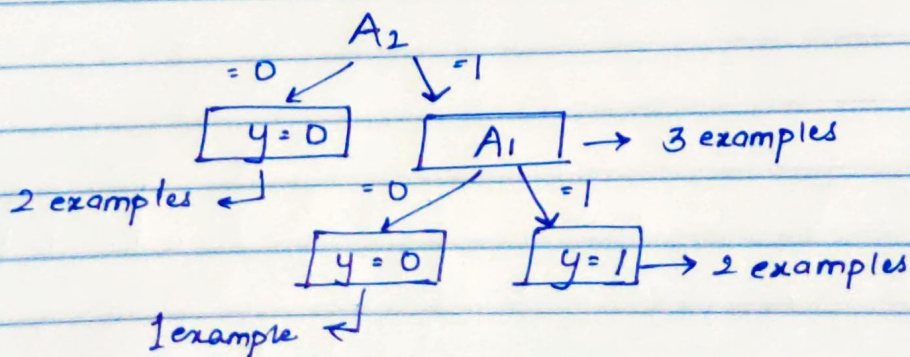 A2
= 0 =1
y = 0 A1 → 3 examples
2 examples = 0 = 1
y = 0 y = 1 → 2 examples
1 example